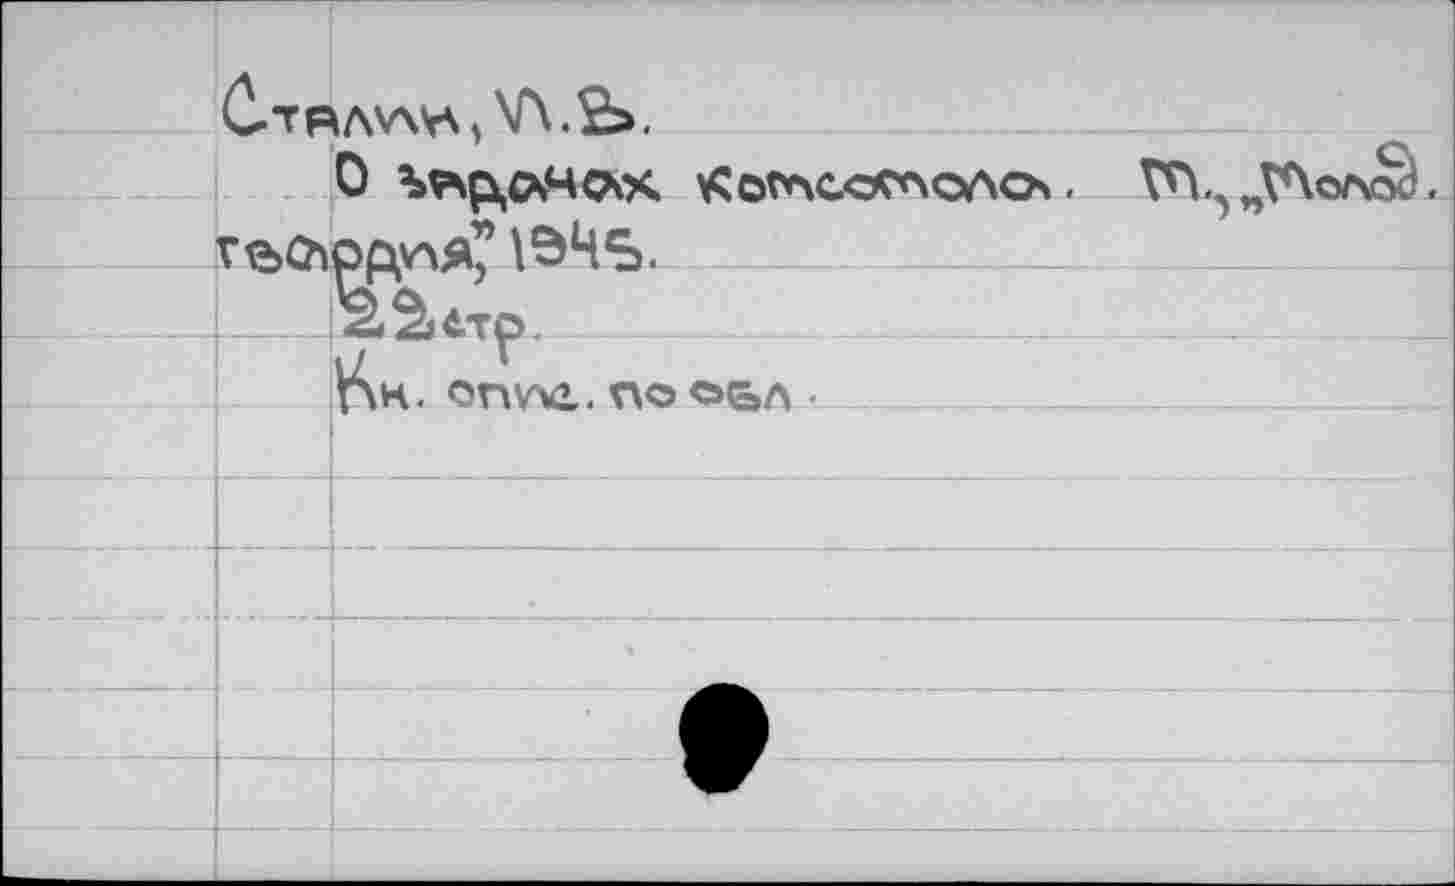 Сталин, И.В.
О задачах комсомола. М., „Молод.
гвардия", 1945.
22 стр.
Кн. опис. по обл.